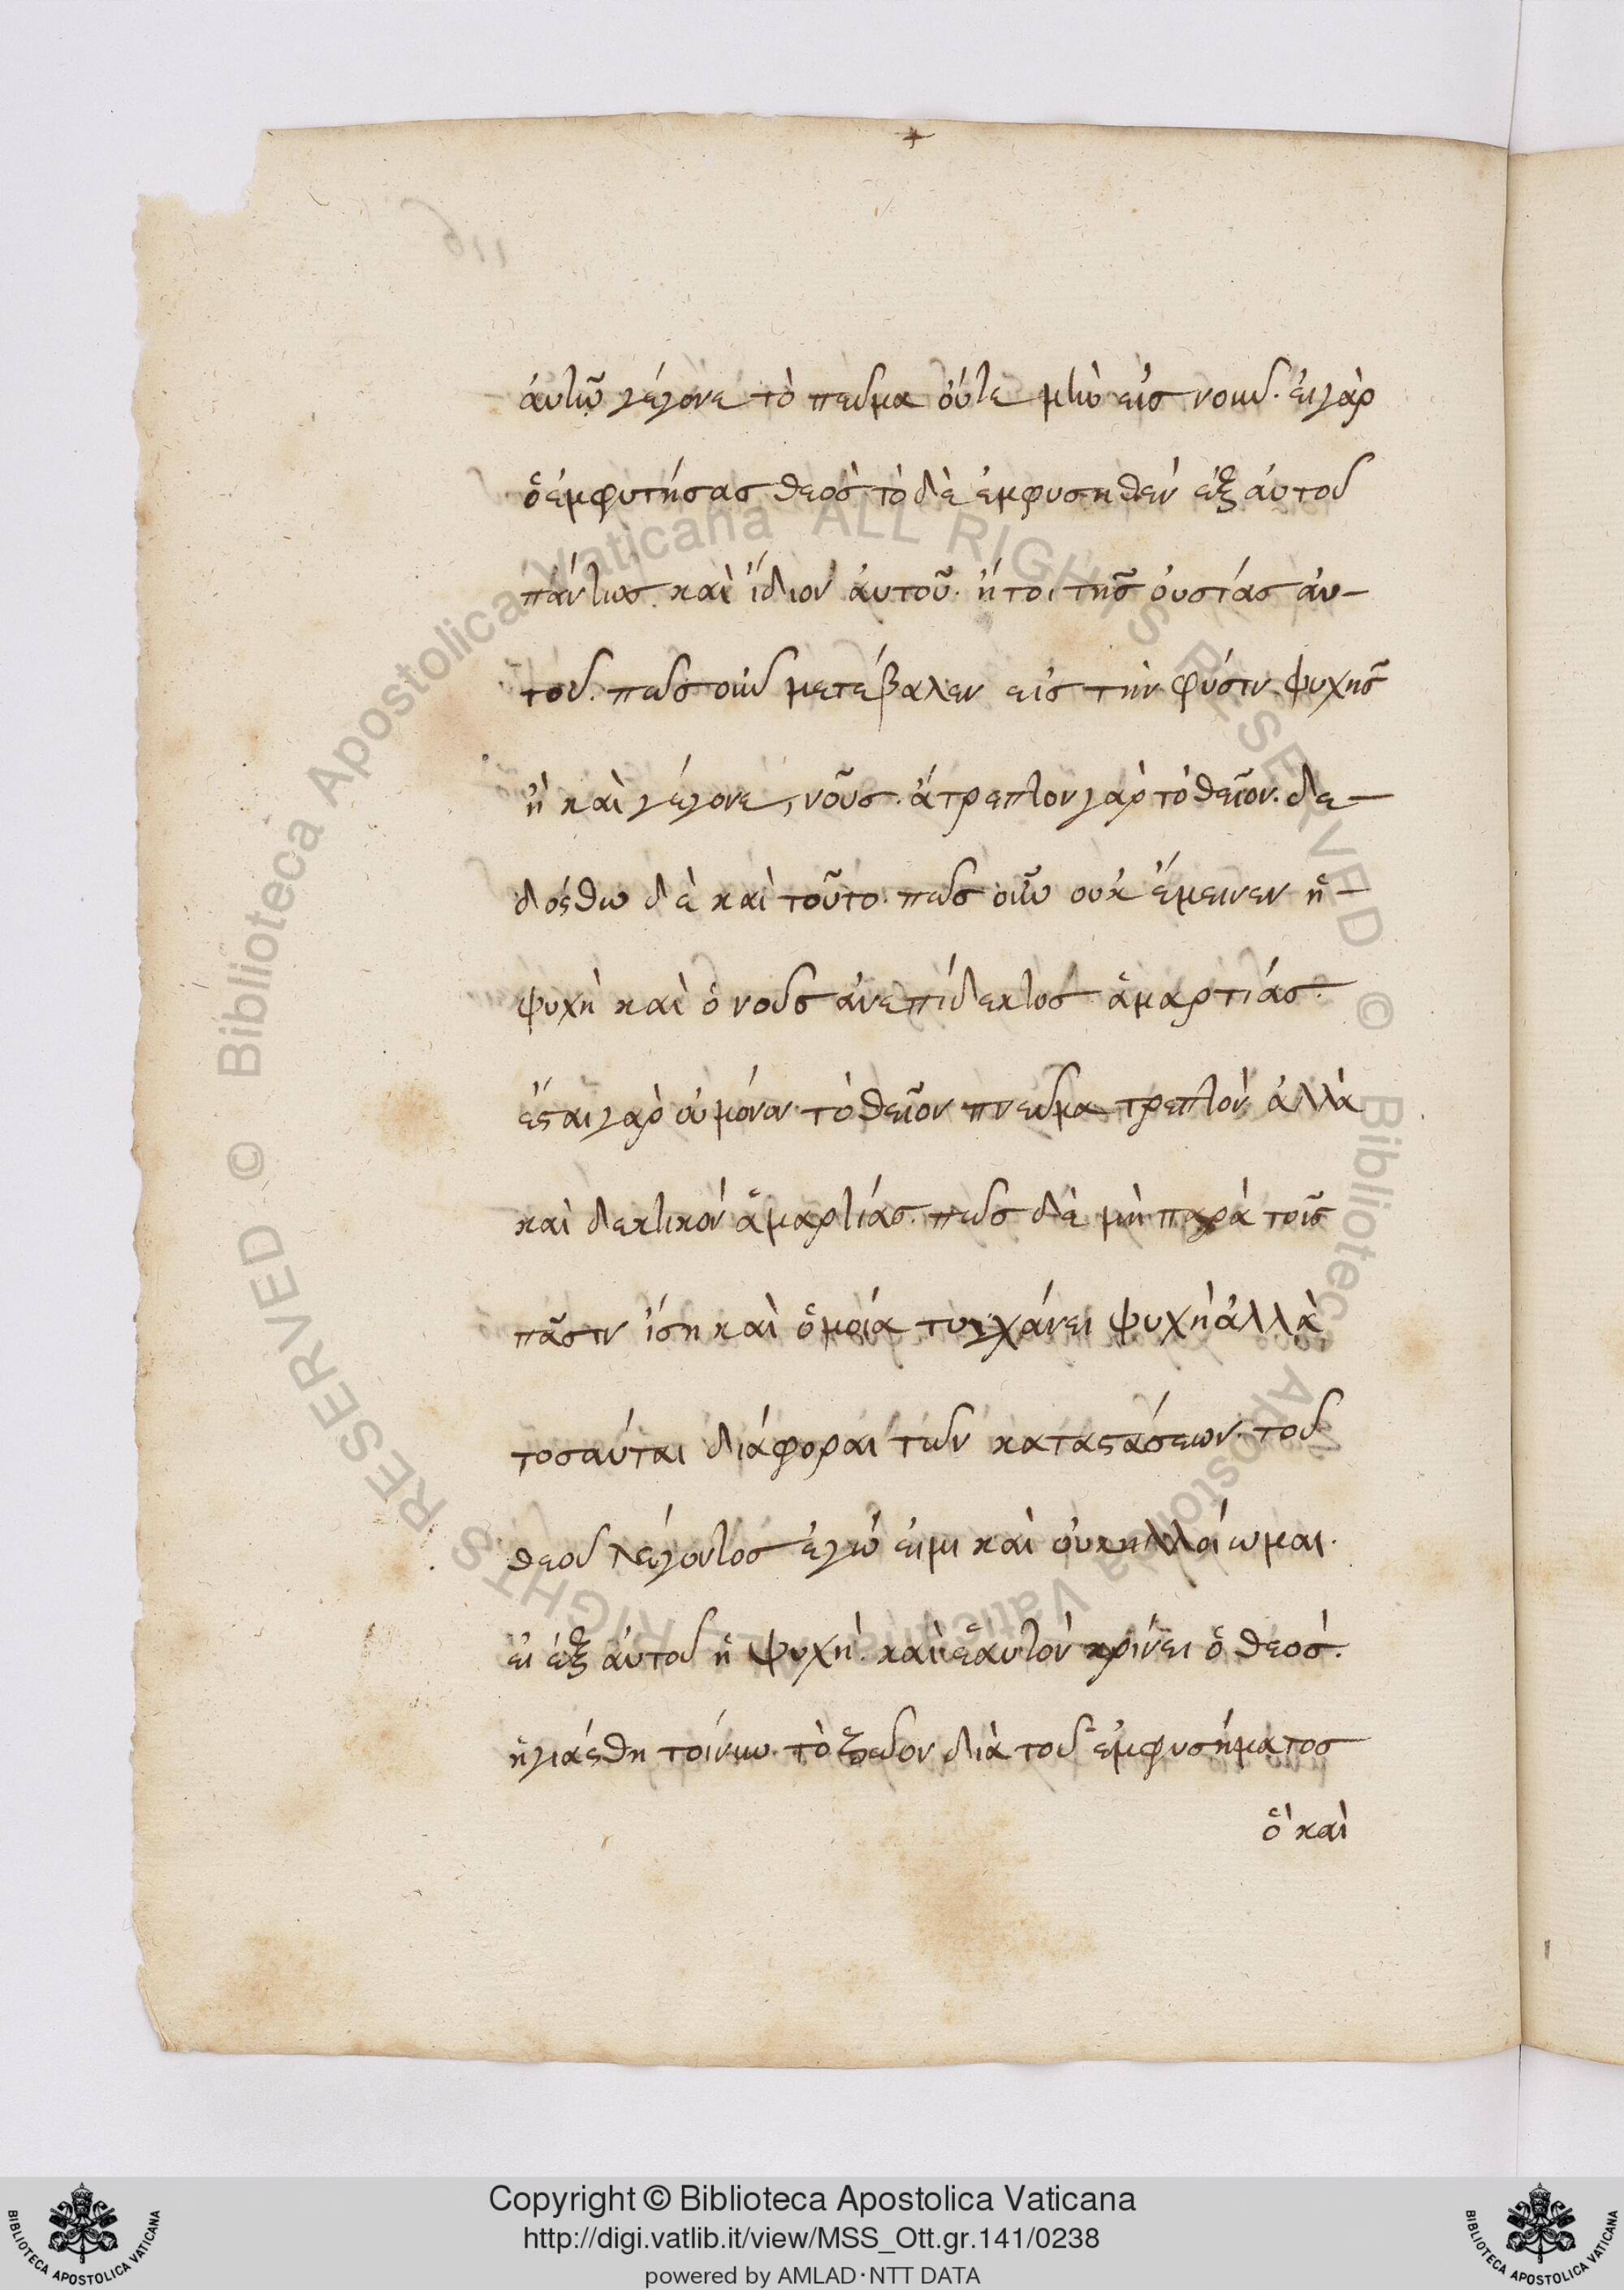 +
116
ἀυτῶ γέγονε τὸ πνεῦμα ὄυτε μὴν εἰς νοῦν. ἐι γὰρ
ὁ ἐμφυτήσας θεὸς τὸ δὲ ἐμφυσηθὲν ἐξ ἀυτοῦ
πάντως. καὶ ἴδιον ἀυτοῦ. ἤτοι τῆς ὀυσίας ἀυ-
τοῦ. πῶς οὖν μετέβαλεν εἰς τὴν φύσιν ψυχῆς
ἢ καὶ γέγονε, νοῦς. ἄτρεπτον γὰρ τὸ θεῖον. δε-
δόσθω δὲ καὶ τοῦτο. πῶς οὖν ουκ ἔμεινεν ἡ-
ψυχὴ καὶ ὁ νοῦς ἀνεπίδεκτος ἁμαρτίας.
ἔσται γὰρ οὐ μόνον τὸ θεῖον πνεῦμα τρεπτὸν ἀλλὰ
καὶ δεκτικὸν ἁμαρτίας. πῶς δὲ μὴ παρὰ τοῖς
πᾶσιν ἴση καὶ ὁμοία τυγχάνει ψυχὴ ἀλλὰ
τοσαύται διάφοραι τῶν καταστάσεων. τοῦ
θεοῦ λέγοντος ἐγώ ἐιμι καὶ ὀυκ ἠλλοίωμαι.
ἐι ἐξ ἀυτοῦ ἡ ψυχὴ. καὶ ἑαυτὸν κρίνει ὁ θεὸς.
ἡγιάσθη τοίνυν. τὸ ζῶον διὰ τοῦ ἐμφυσήματος
ὃ καὶ
Copyright © Biblioteca Apostolica Vaticana
http://digi.vatlib.it/view/MSS_Ott.gr.141/0238
powered by AMLAD·NTT DATA
© Biblioteca Apostolica Vaticana ALL RIGHTS RESERVED © Biblioteca Apostolica Vaticana ALL RIGHTS RESERVED
BIBLIOTECA APOSTOLICA VATICANA
BIBLIOTECA APOSTOLICA VATICANA